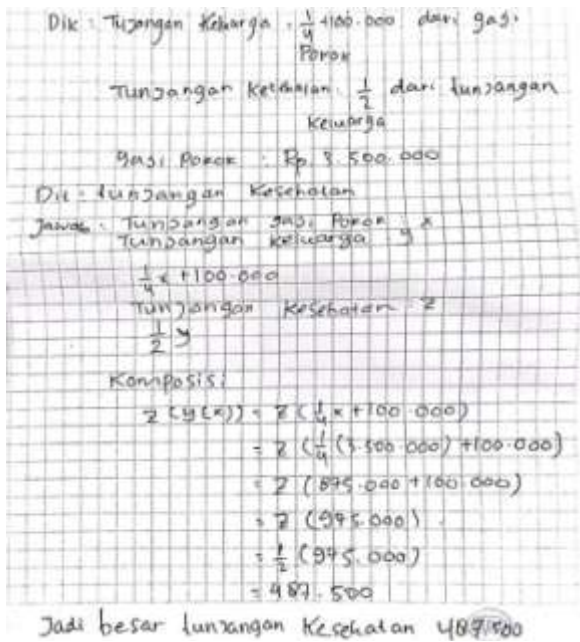 Dik : Tujangan Keluarga : 1/4 +100.000 dari gaji
Pokok
Tunjangan Kesehatan : 1/2 dari tunjangan
Keluarga
gaji Pokok : Rp. 3.500.000
Dit : tunjangan Kesehatan
Jawab : Tunjangan gaji Pokok x
Tunjangan keluarga y
1/4 x +100.000
Tunjangan kesehatan z
1/2 y
Komposisi
z (y(x)) = z (1/4 x + 100.000)
= z (1/4 (3.500.000) +100.000)
= z (875.000 + 100.000)
= z (975.000)
= 1/2 (975.000)
= 487.500
Jadi besar tunjangan Kesehatan 487.500